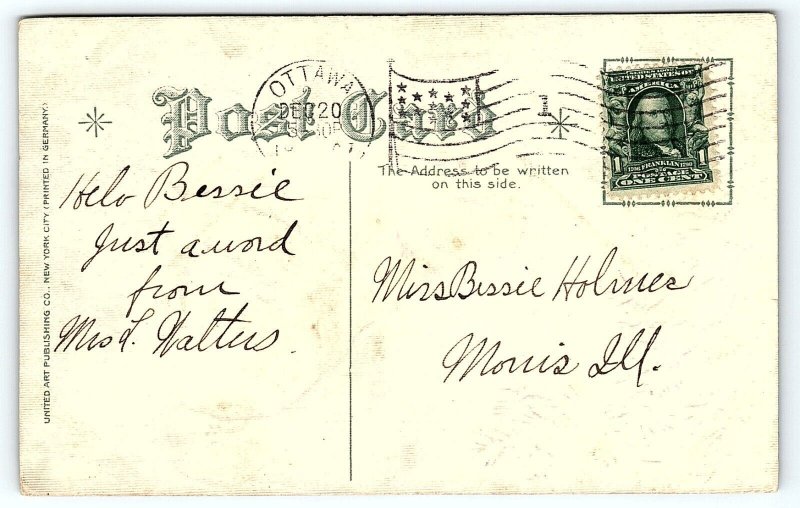 UNITED ART PUBLISHING CO., NEW YORK CITY (PRINTED IN GERMANY.)
Post Card
OTTAWA
DEC 20
The Address to be written
on this side.
UNITED STATES OF
AMERICA
FRANKLIN
POSTAGE
1 ONE CENT 1
Helo Bessie
Just a word
from
Mrs L. Walters.
Miss Bessie Holmes
Morris Ill.